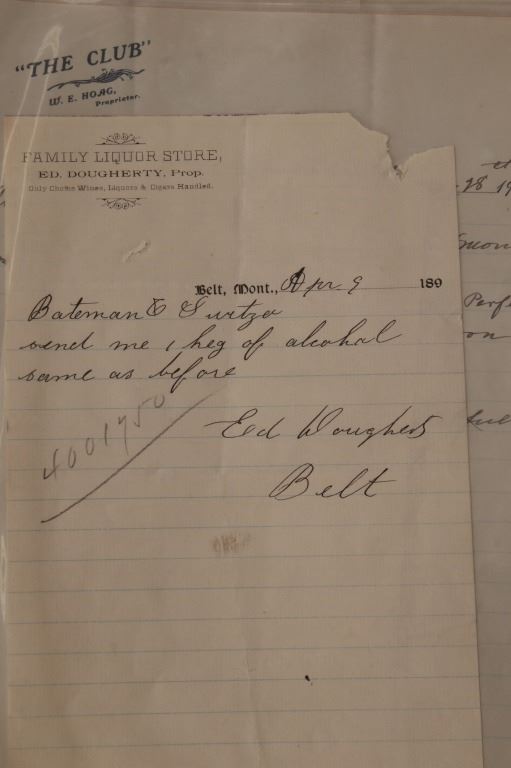 "THE CLUB"
W. E. HOAG,
Proprietor.
FAMILY LIQUOR STORE,
ED. DOUGHERTY, Prop.
Only Choice Wines, Liquors & Cigars Handled.
28 19
Belt, Mont., Apr 9 189
Bateman &
send me 1 keg of alcohal
same as before
Ed Doughert
Belt
on